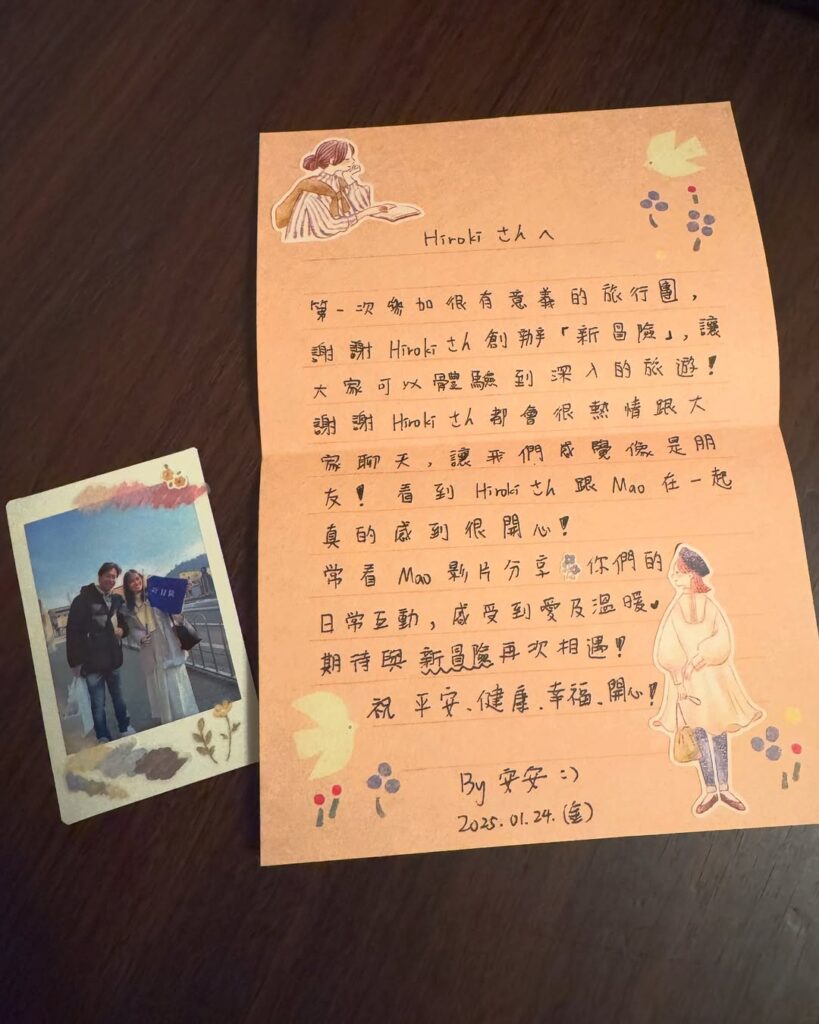 Hiroki さんへ
第一次參加很有意義的旅行團，
謝謝 Hirokiさん創辦「新冒險」，讓
大家可以體驗到深入的旅遊！
謝謝 Hirokiさん都會很熱情跟大
家聊天，讓我們感覺像是朋
友！看到 Hirokiさん跟 Mao 在一起
真的感到很開心！
常看 Mao 影片分享你們的
日常互動，感受到愛及溫暖♥
期待與新冒險再次相遇！
祝 平安、健康、幸福、開心！
By 安安 :)
2025.01.24.(金)